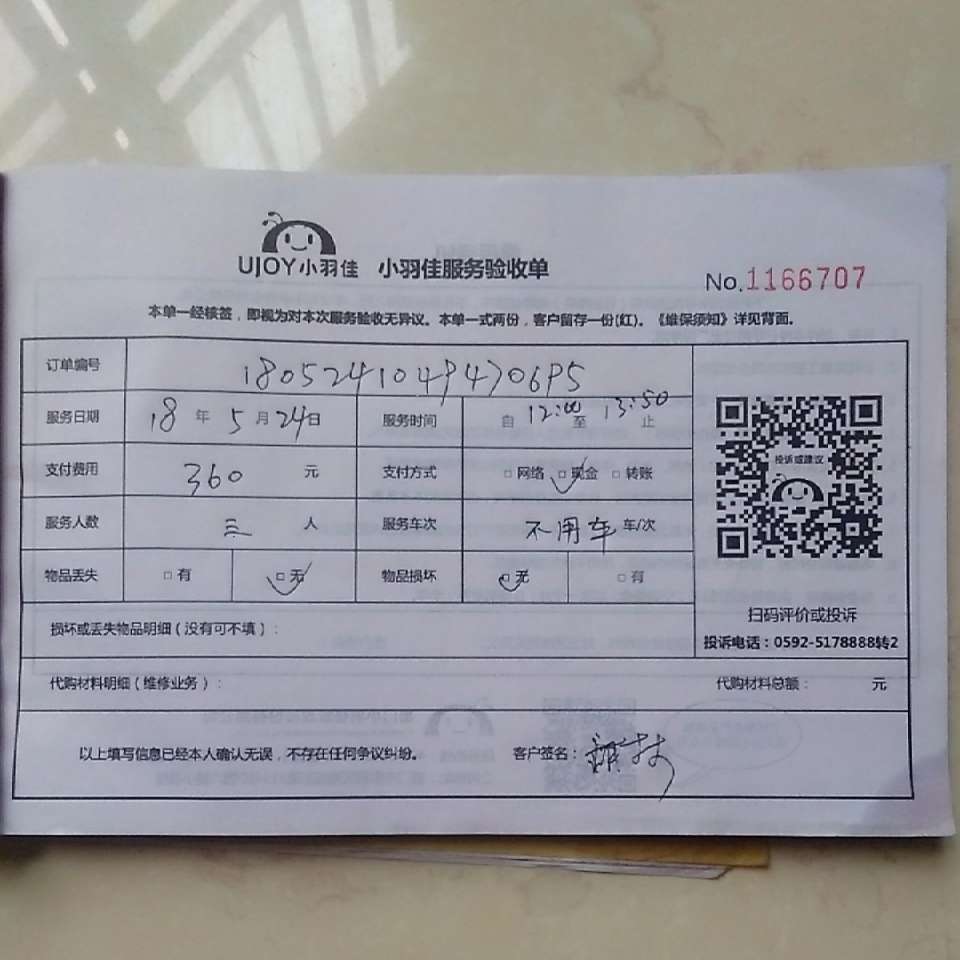 UJOY小羽佳 小羽佳服务验收单
No.1166707
本单一经核签，即视为对本次服务验收无异议。本单一式两份，客户留存一份(红)。《维保须知》详见背面。
订单编号 18052410494706P5
服务日期 18年5月24日 服务时间 自12:00至13:50止
支付费用 360元 支付方式 □网络 □现金 □转账
服务人数 三人 服务车次 不用车 车/次
物品丢失 □有 □无 物品损坏 □无 □有
投诉或建议
扫码评价或投诉
投诉电话：0592-5178888转2
损坏或丢失物品明细（没有可不填）：
代购材料明细（维修业务）： 代购材料总额： 元
以上填写信息已经本人确认无误，不存在任何争议纠纷。 客户签名：